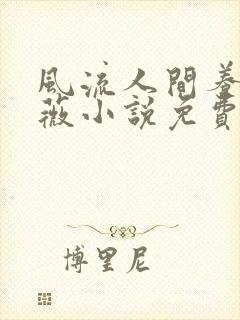 風流人間蔷
薇小說免費
博里尼